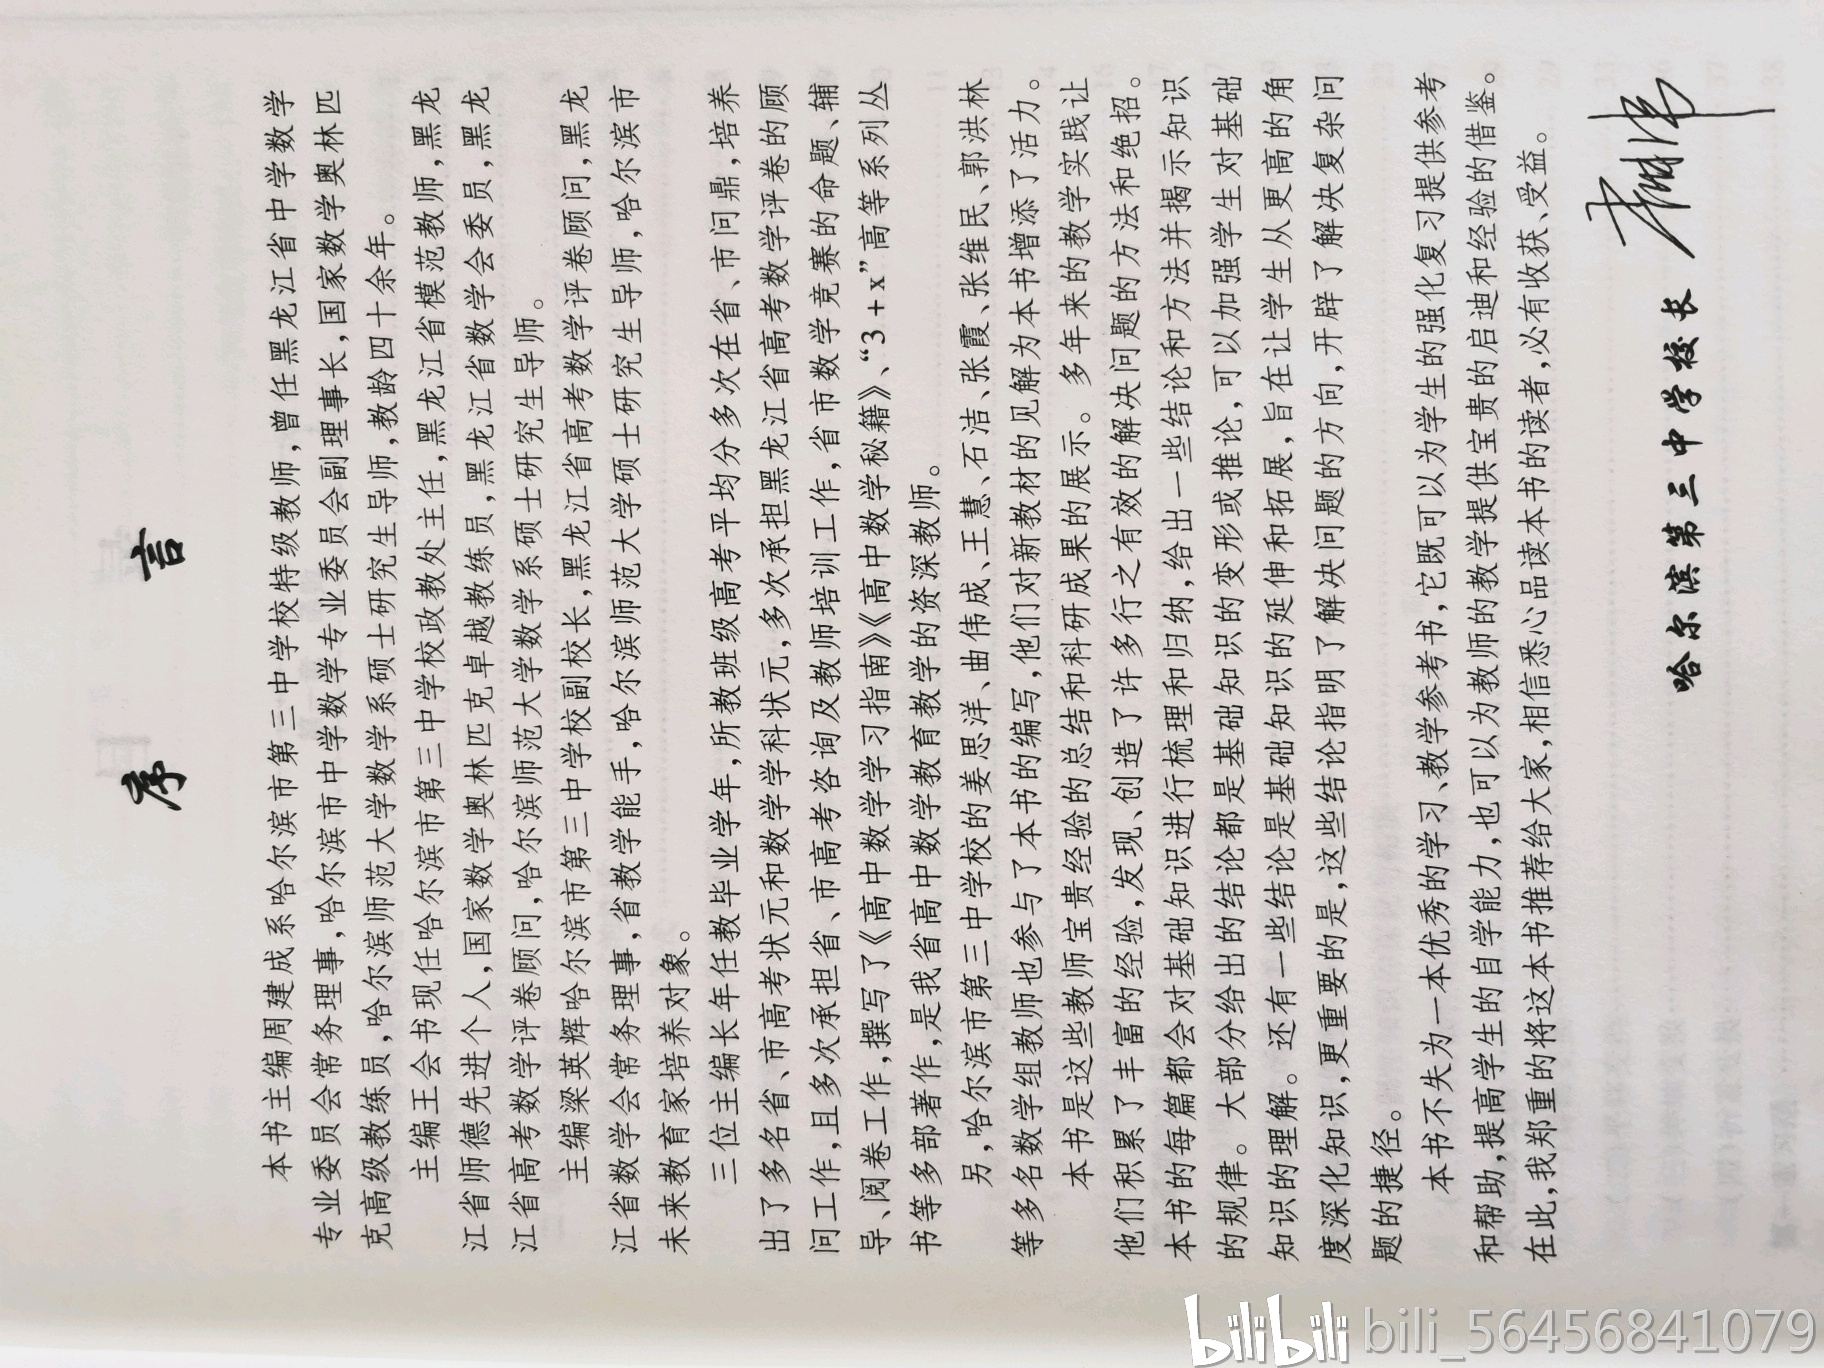 序 言
本书主编周建成系哈尔滨市第三中学校特级教师,曾任黑龙江省中学数学
专业委员会常务理事,哈尔滨市中学数学专业委员会副理事长,国家数学奥林匹
克高级教练员,哈尔滨师范大学数学系硕士研究生导师,教龄四十余年。
主编王会书现任哈尔滨市第三中学校政教处主任,黑龙江省模范教师,黑龙
江省师德先进个人,国家数学奥林匹克卓越教练员,黑龙江省数学会委员,黑龙
江省高考数学评卷顾问,哈尔滨师范大学数学系硕士研究生导师。
主编梁英辉哈尔滨市第三中学校副校长,黑龙江省高考数学评卷顾问,黑龙
江省数学会常务理事,省教学能手,哈尔滨师范大学硕士研究生导师,哈尔滨市
未来教育家培养对象。
三位主编长年任教毕业学年,所教班级高考平均分多次在省、市问鼎,培养
出了多名省、市高考状元和数学学科状元,多次承担黑龙江省高考数学评卷的顾
问工作,且多次承担省、市高考咨询及教师培训工作,省市数学竞赛的命题、辅
导、阅卷工作,撰写了《高中数学学习指南》《高中数学秘籍》、“3+x”高等系列丛
书等多部著作,是我省高中数学教育教学的资深教师。
另,哈尔滨市第三中学校的姜思洋、曲伟成、王慧、石洁、张霞、张维民、郭洪林
等多名数学组教师也参与了本书的编写,他们对新教材的见解为本书增添了活力。
本书是这些教师宝贵经验的总结和科研成果的展示。多年来的教学实践让
他们积累了丰富的经验,发现、创造了许多行之有效的解决问题的方法和绝招。
本书的每篇都会对基础知识进行梳理和归纳,给出一些结论和方法并揭示知识
的规律。大部分给出的结论都是基础知识的变形或推论,可以加强学生对基础
知识的理解。还有一些结论是基础知识的延伸和拓展,旨在让学生从更高的角
度深化知识,更重要的是,这些结论指明了解决问题的方向,开辟了解决复杂问
题的捷径。
本书不失为一本优秀的学习、教学参考书,它既可以为学生的强化复习提供参考
和帮助,提高学生的自学能力,也可以为教师的教学提供宝贵的启迪和经验的借鉴。
在此,我郑重的将这本书推荐给大家,相信悉心品读本书的读者,必有收获、受益。
哈尔滨第三中学校长
bilibili bili_56456841079